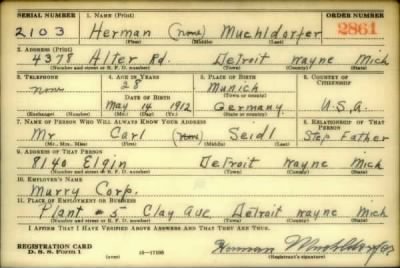 SERIAL NUMBER 1. NAME (Print) ORDER NUMBER
2103 Herman (none) Muehldorfer 2861
(First) (Middle) (Last)
2. ADDRESS (Print)
4378 Alter Rd. Detroit Wayne Mich
(Number and street or R. F. D. number) (Town) (County) (State)
3. TELEPHONE 4. AGE IN YEARS 5. PLACE OF BIRTH 6. COUNTRY OF CITIZENSHIP
none 28 Munich
DATE OF BIRTH (Town or county)
May 14 1912 Germany U.S.A.
(Mo.) (Day) (Yr.) (State or country)
7. NAME OF PERSON WHO WILL ALWAYS KNOW YOUR ADDRESS 8. RELATIONSHIP OF THAT PERSON
Mr Carl (none) Seidl Step Father
(Mr., Mrs., Miss) (First) (Middle) (Last)
9. ADDRESS OF THAT PERSON
8140 Elgin Detroit Wayne Mich
(Number and street or R. F. D. number) (Town) (County) (State)
10. EMPLOYER'S NAME
Murry Corp.
11. PLACE OF EMPLOYMENT OR BUSINESS
Plant #5 Clay Ave Detroit Wayne Mich
(Number and street or R. F. D. number) (Town) (County) (State)
I AFFIRM THAT I HAVE VERIFIED ABOVE ANSWERS AND THAT THEY ARE TRUE.
REGISTRATION CARD
D. S. S. Form 1 (over) Herman Muehldorfer
(Registrant's signature)